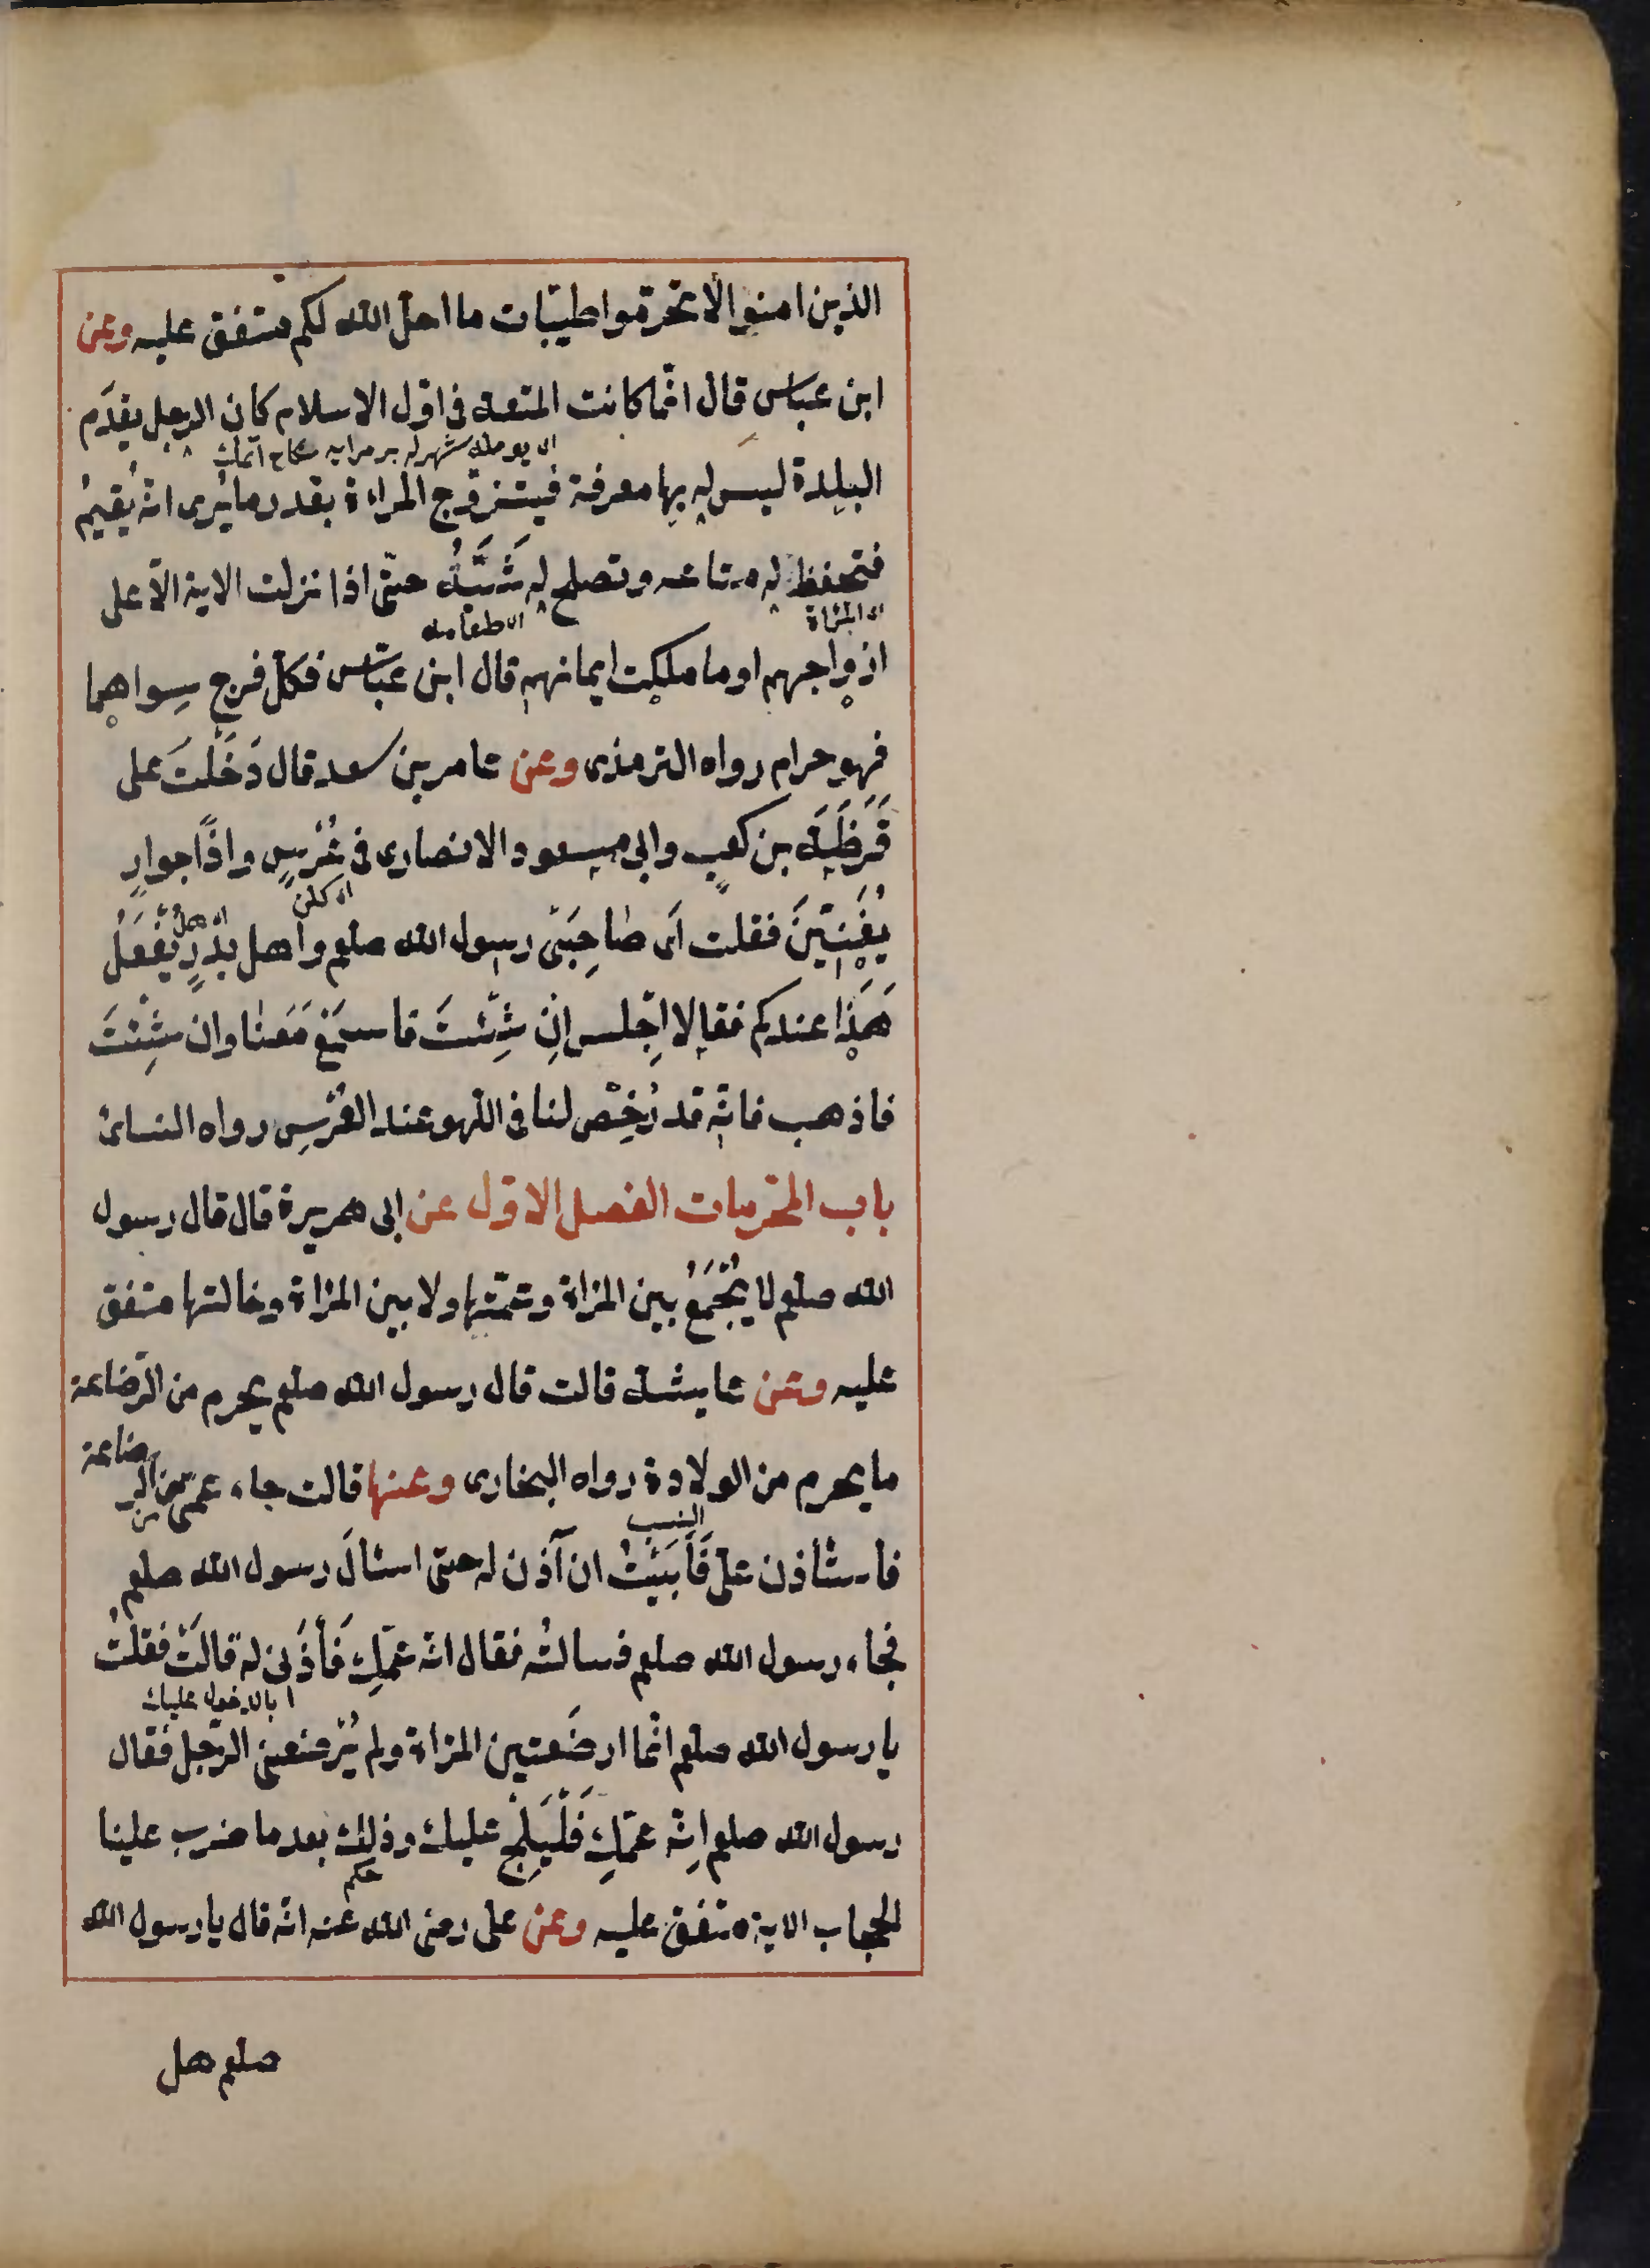 الذين امنوا لا تحرموا طيبات ما احل الله لكم متفق عليه وعن
ابن عباس قال انما كانت المتعة فى اول الاسلام كان الرجل يقدم
البلدة ليس له بها معرفة فيتزوج المراة بقدر ما يُرى انه يُقيمُ
فتحفظ له متاعه وتصلح له شَيَّهُ حتى اذا نزلت الاية الا على
اى المراة
اى طعامه
ازواجهم او ما ملكت ايمانهم قال ابن عباس فكل فرج سِواهما
فهو حرام رواه الترمذى وعن عامر بن سعد قال دَخَلْتَ على
قَرَظَةَ بن كعب وابى مسعود الانصارى فى عُرْسٍ واذًا جوارٍ
يُغَنِّيْنَ فقلت اَى صَاحِبَىْ رسول الله صلعم واهل بَدْرٍ يُفْعَلُ
هَذَا عندكم فقالا اِجلس اِنْ شِئتَ فاسمَعْ مَعَنا وان شِئتَ
فاذهب فانه قد رُخِّصَ لنا فى اللهو عند العُرْسِ رواه النسائ
باب المحرمات الفصل الاول عن ابى هريرة قال قال رسول
الله صلعم لا يُجْمَعُ بين المراة وعمتها ولا بين المراة وخالتها متفق
عليه وعن عايشة قالت قال رسول الله صلعم يحرم من الرضاعة
ما يحرم من الولادة رواه البخارى وعنها قالت جاء عمى من الرضاعة
النسب
فاستأذن علىّ فَأَبَيْتُ ان آذن له حتى اسئالَ رسول الله صلعم
فجاء رسول الله صلعم فسالتُه فقال انه عمّكِ فَأْذَنى له قالَتْ فقلتُ
بالدخول عليك
يا رسول الله صلعم انما ارضَعتنى المراة ولم يُرْضعنى الرجل فقال
رسول الله صلعم اِنه عمّكِ فَلْيَلِجْ عليك وذلك بعد ما ضرب علينا
الحجاب الاية متفق عليه وعن على رضى الله عنه انه قال يا رسول الله
صلعم هل